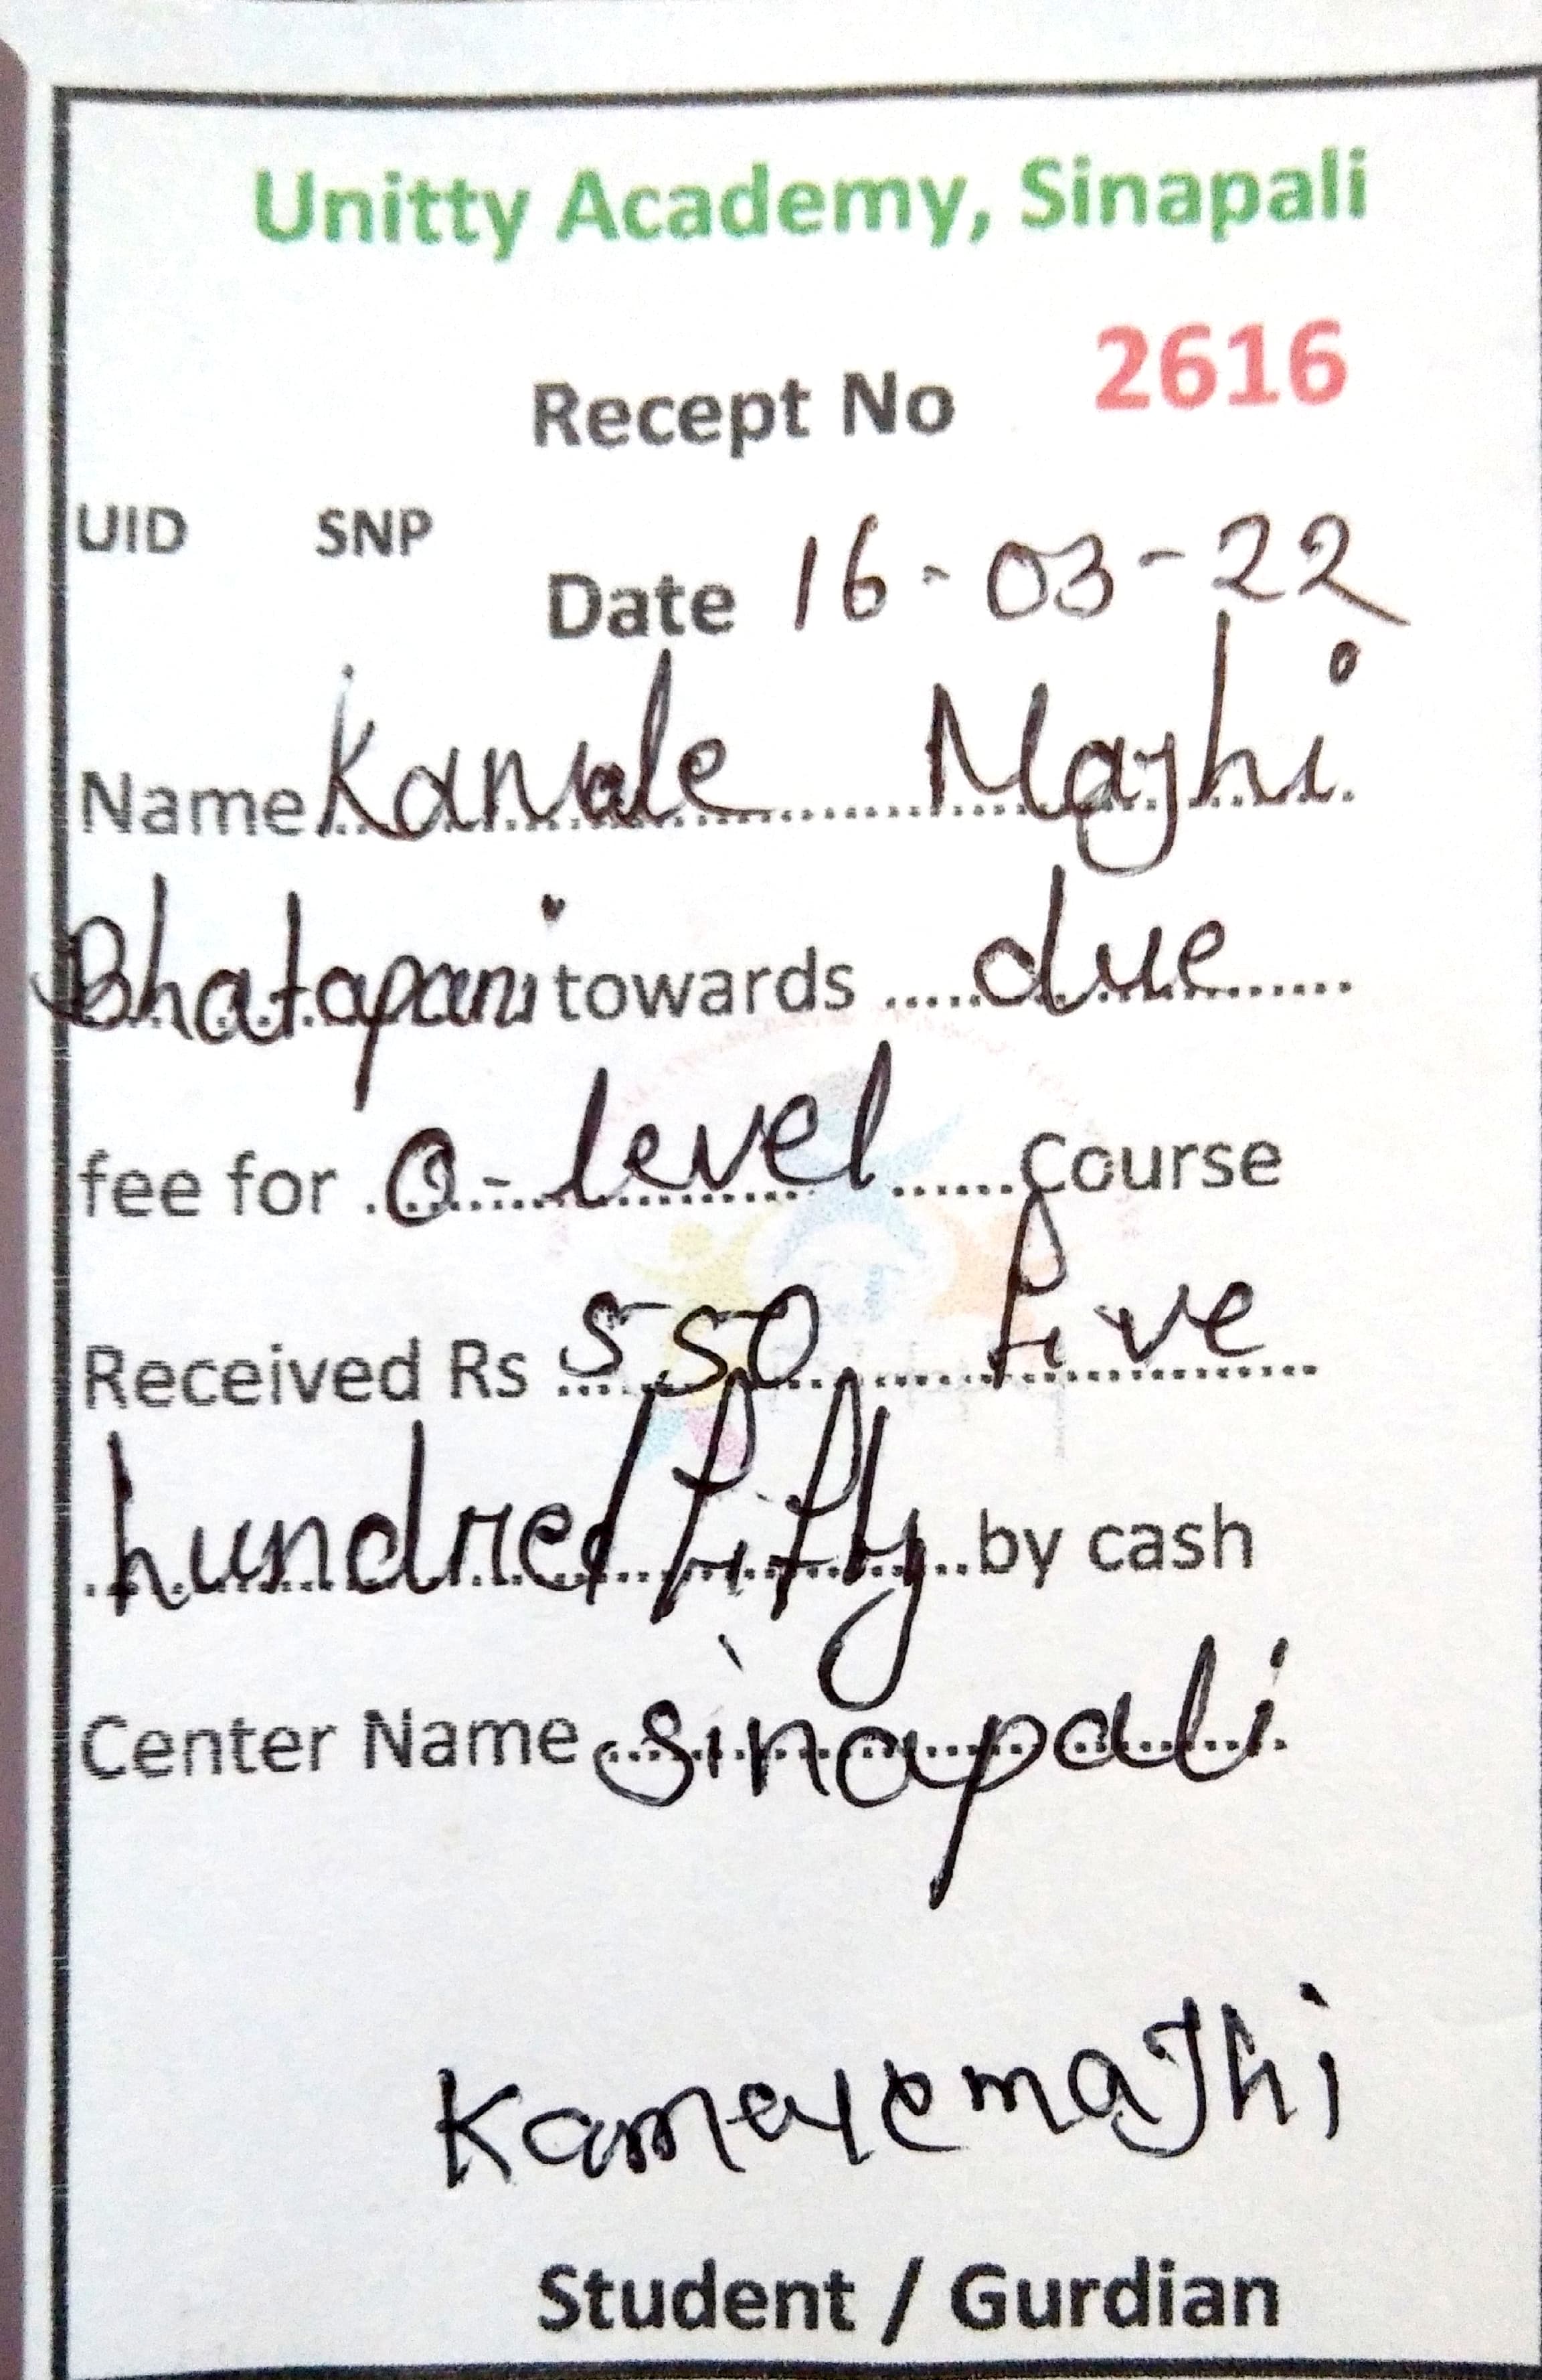 Unitty Academy, Sinapali
Recept No 2616
UID SNP
Date 16-03-22
Name Kamale Majhi
Bhatapani towards due
fee for O-level Course
Received Rs 550 five
hundred fifty by cash
Center Name Sinapali
Kamale majhi
Student / Gurdian